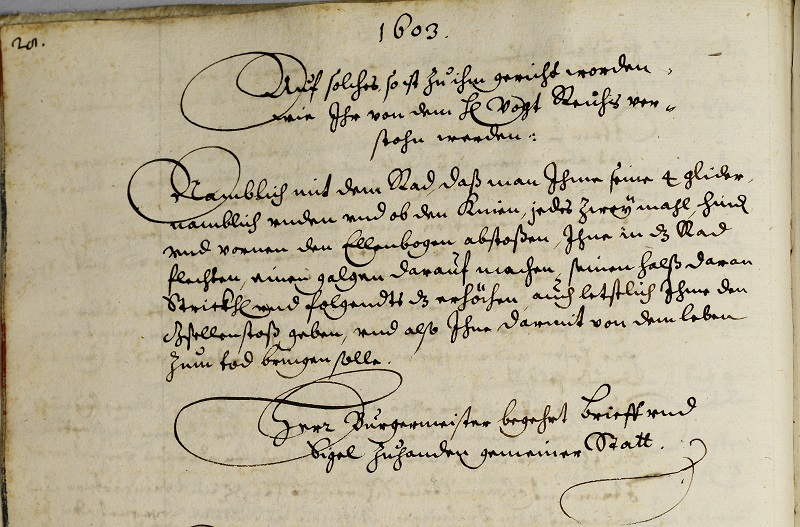 1603.
Auf solches so ist zu ihm gericht worden,
wie Ihr von dem H Vogt Reichs ver-
stohn werden:
Namblich mit dem Rad, daß man Ihme seine 4 glider,
namblich vnden vnd ob den Knien, jedes zweÿ mahl, hind
vnd vornen den Ellenbogen abstoßen, Ihne in dz Rad
flechten, einen galgen darauf machen, seinen halß daran
Strickhen vnd folgendts dz erhöchen, auch letstlich Ihme den
gsellenstoß geben, vnd also Ihne darmit von dem leben
zum tod bringen solle.
Herr Burgermeister begehrt Brieff vnd
Sigel zuhanden gemeiner Statt.